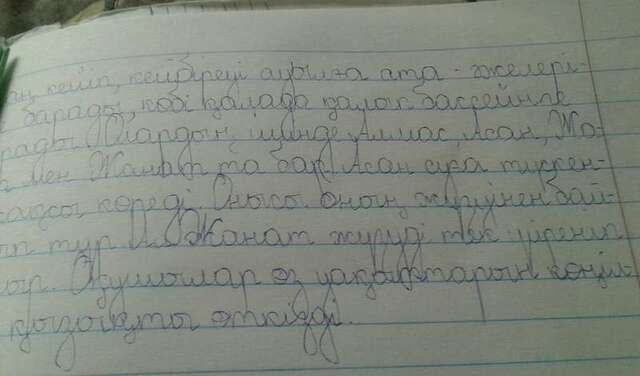 кейін, кейбіреуі ауылға ата - әжелері-
барады, көбі қалада қалып бассейнге
рады. Олардың ішінде Алмас, Асан, Жа-
мен Жанат та бар. Асан суға түскен-
жақсы көреді. Онысы оның жүзуінен бай-
тұр. Ал Жанат жүзуді тек үйреніп
Оқушылар өз уақыттарын көңіл-
қызықты өткізді.